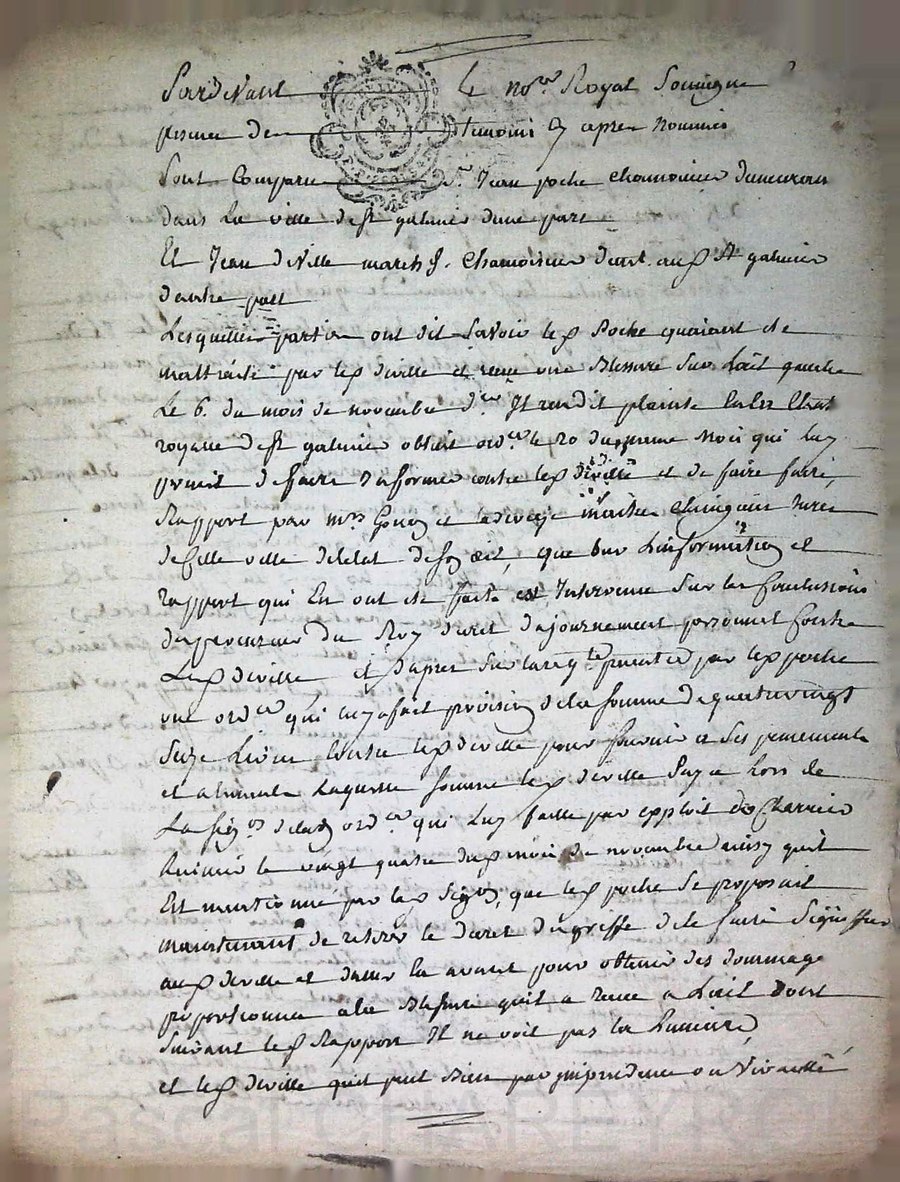 Pardevant le no.re Royal Soussigne
presence de temoins Cy apres nommés
Sont Comparu S.r Jean poche chamoisier demeurant
dans la ville de st galmier dune part
Et Jean deville march.d chamoisier demt. aud St galmier
dautre part
Lesquelles parties ont dit savoir led Poche quaiant ete
maltraité par led deville et recu une Blessure Sur Lœil gauche
Le 6. du mois de novembre d.er Il rendit plainte En la Chat
royalle de st galmier obtint ord.ce le 20 du meme mois qui luy
permit de faire Informer contre led deville et de faire faire
Rapport par m.rs et maitres chirurgiens Jurés
de cette ville de letat de son œil, que Sur Linformation et
rapport qui En ont eté faits est Intervenue Sur les Conclusions
du procureur du Roy decret dajournement personnel Contre
Led deville et dapres Sur la req.te presentée par led poche
une ord.ce qui luy a fait provision de la somme de quatre vingt
Seize Livres Contre led deville pour fournir a Ses pensements
et aliments Laquelle somme led deville paya Lors de
La sig.on de lad ord.ce qui luy faitte par exploit de Charrier
huissier le vingt quatre dud mois de novembre ainsy quil
Est mentionné par lad Sig.on, que led poche Se proposait
maintenant de retirer le decret du greffe de le faire Signiffier
aud deville et daller En avant pour obtenir des dommage
proportionné a la Blessure quil a recue a Lœil Dont
Suivant led Rapport Il ne voit pas la Lumiere,
et led deville quil peut Bien par imprudence ou Vivacité
Pascal CHAREYRON